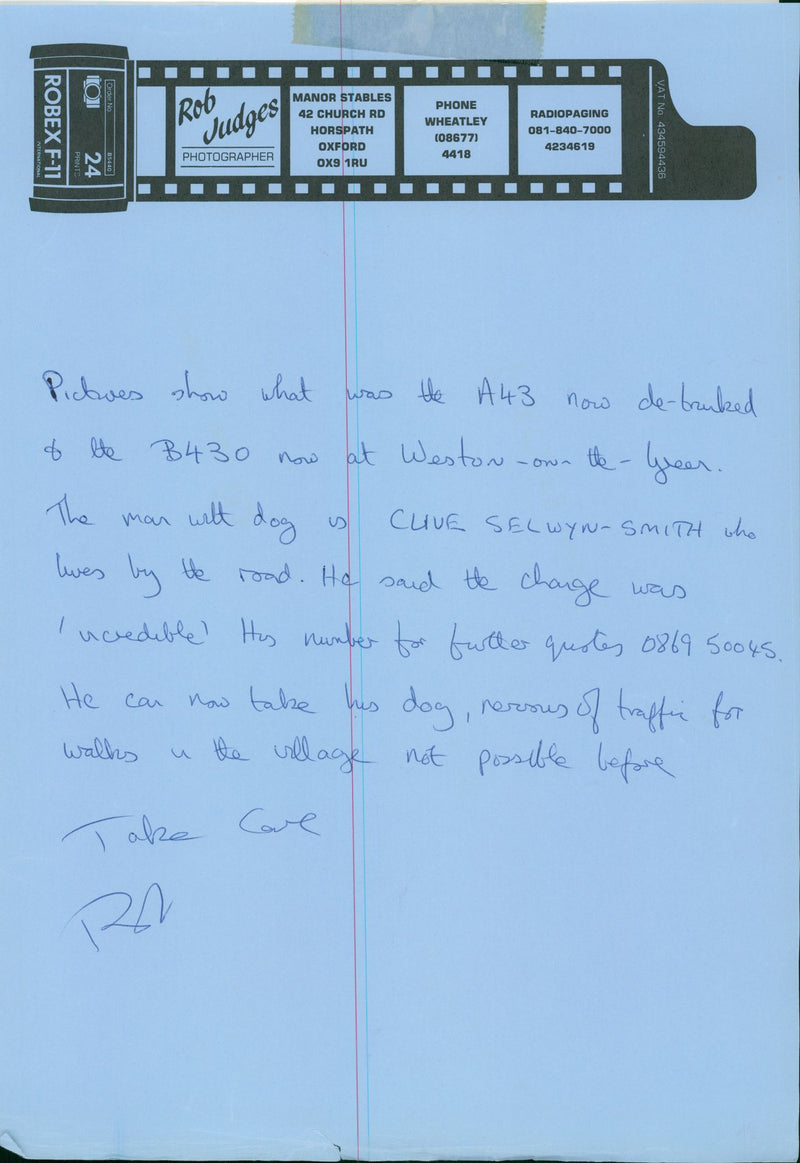 ROBEX F-11
INTERNATIONAL
Order No.
24
PRINTS
Rob
Judges
PHOTOGRAPHER
MANOR STABLES
42 CHURCH RD
HORSPATH
OXFORD
OX9 1RU
PHONE
WHEATLEY
(08677)
4418
RADIOPAGING
081-840-7000
4234619
VAT No. 434594436
Pictures show what was the A43 now de-trunked
& the B430 now at Weston-on-the-Green.
The man with dog is CLIVE SELWYN-SMITH who
lives by the road. He said the change was
'incredible' His number for further quotes 0869 50045.
He can now take his dog, nervous of traffic for
walks in the village not possible before
Take Care